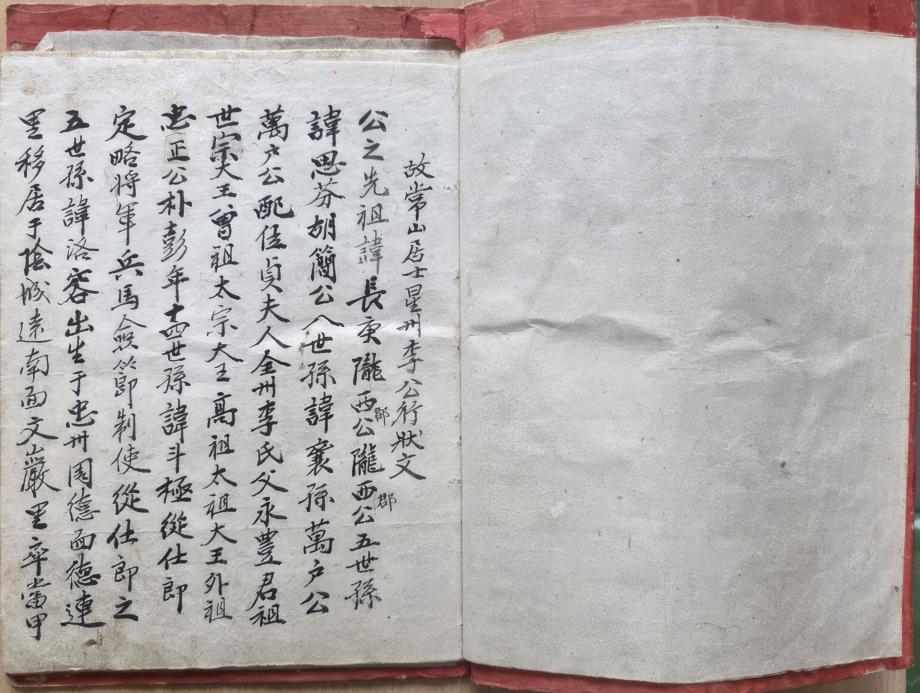 故常山居士星州李公行狀文
公之先祖諱長庚隴西郡公隴西郡公五世孫
諱思芬胡簡公八世孫諱襄孫萬户公
萬户公配佳貞夫人全州李氏父永豊君祖
世宗大王曾祖太宗大王高祖太祖大王外祖
忠正公朴彭年十四世孫諱斗極從仕郎
定略將軍兵馬僉節制使從仕郎之
五世孫諱洛客出生于忠州周德面德連
里移居于陰城遠南面文巖里卒當甲